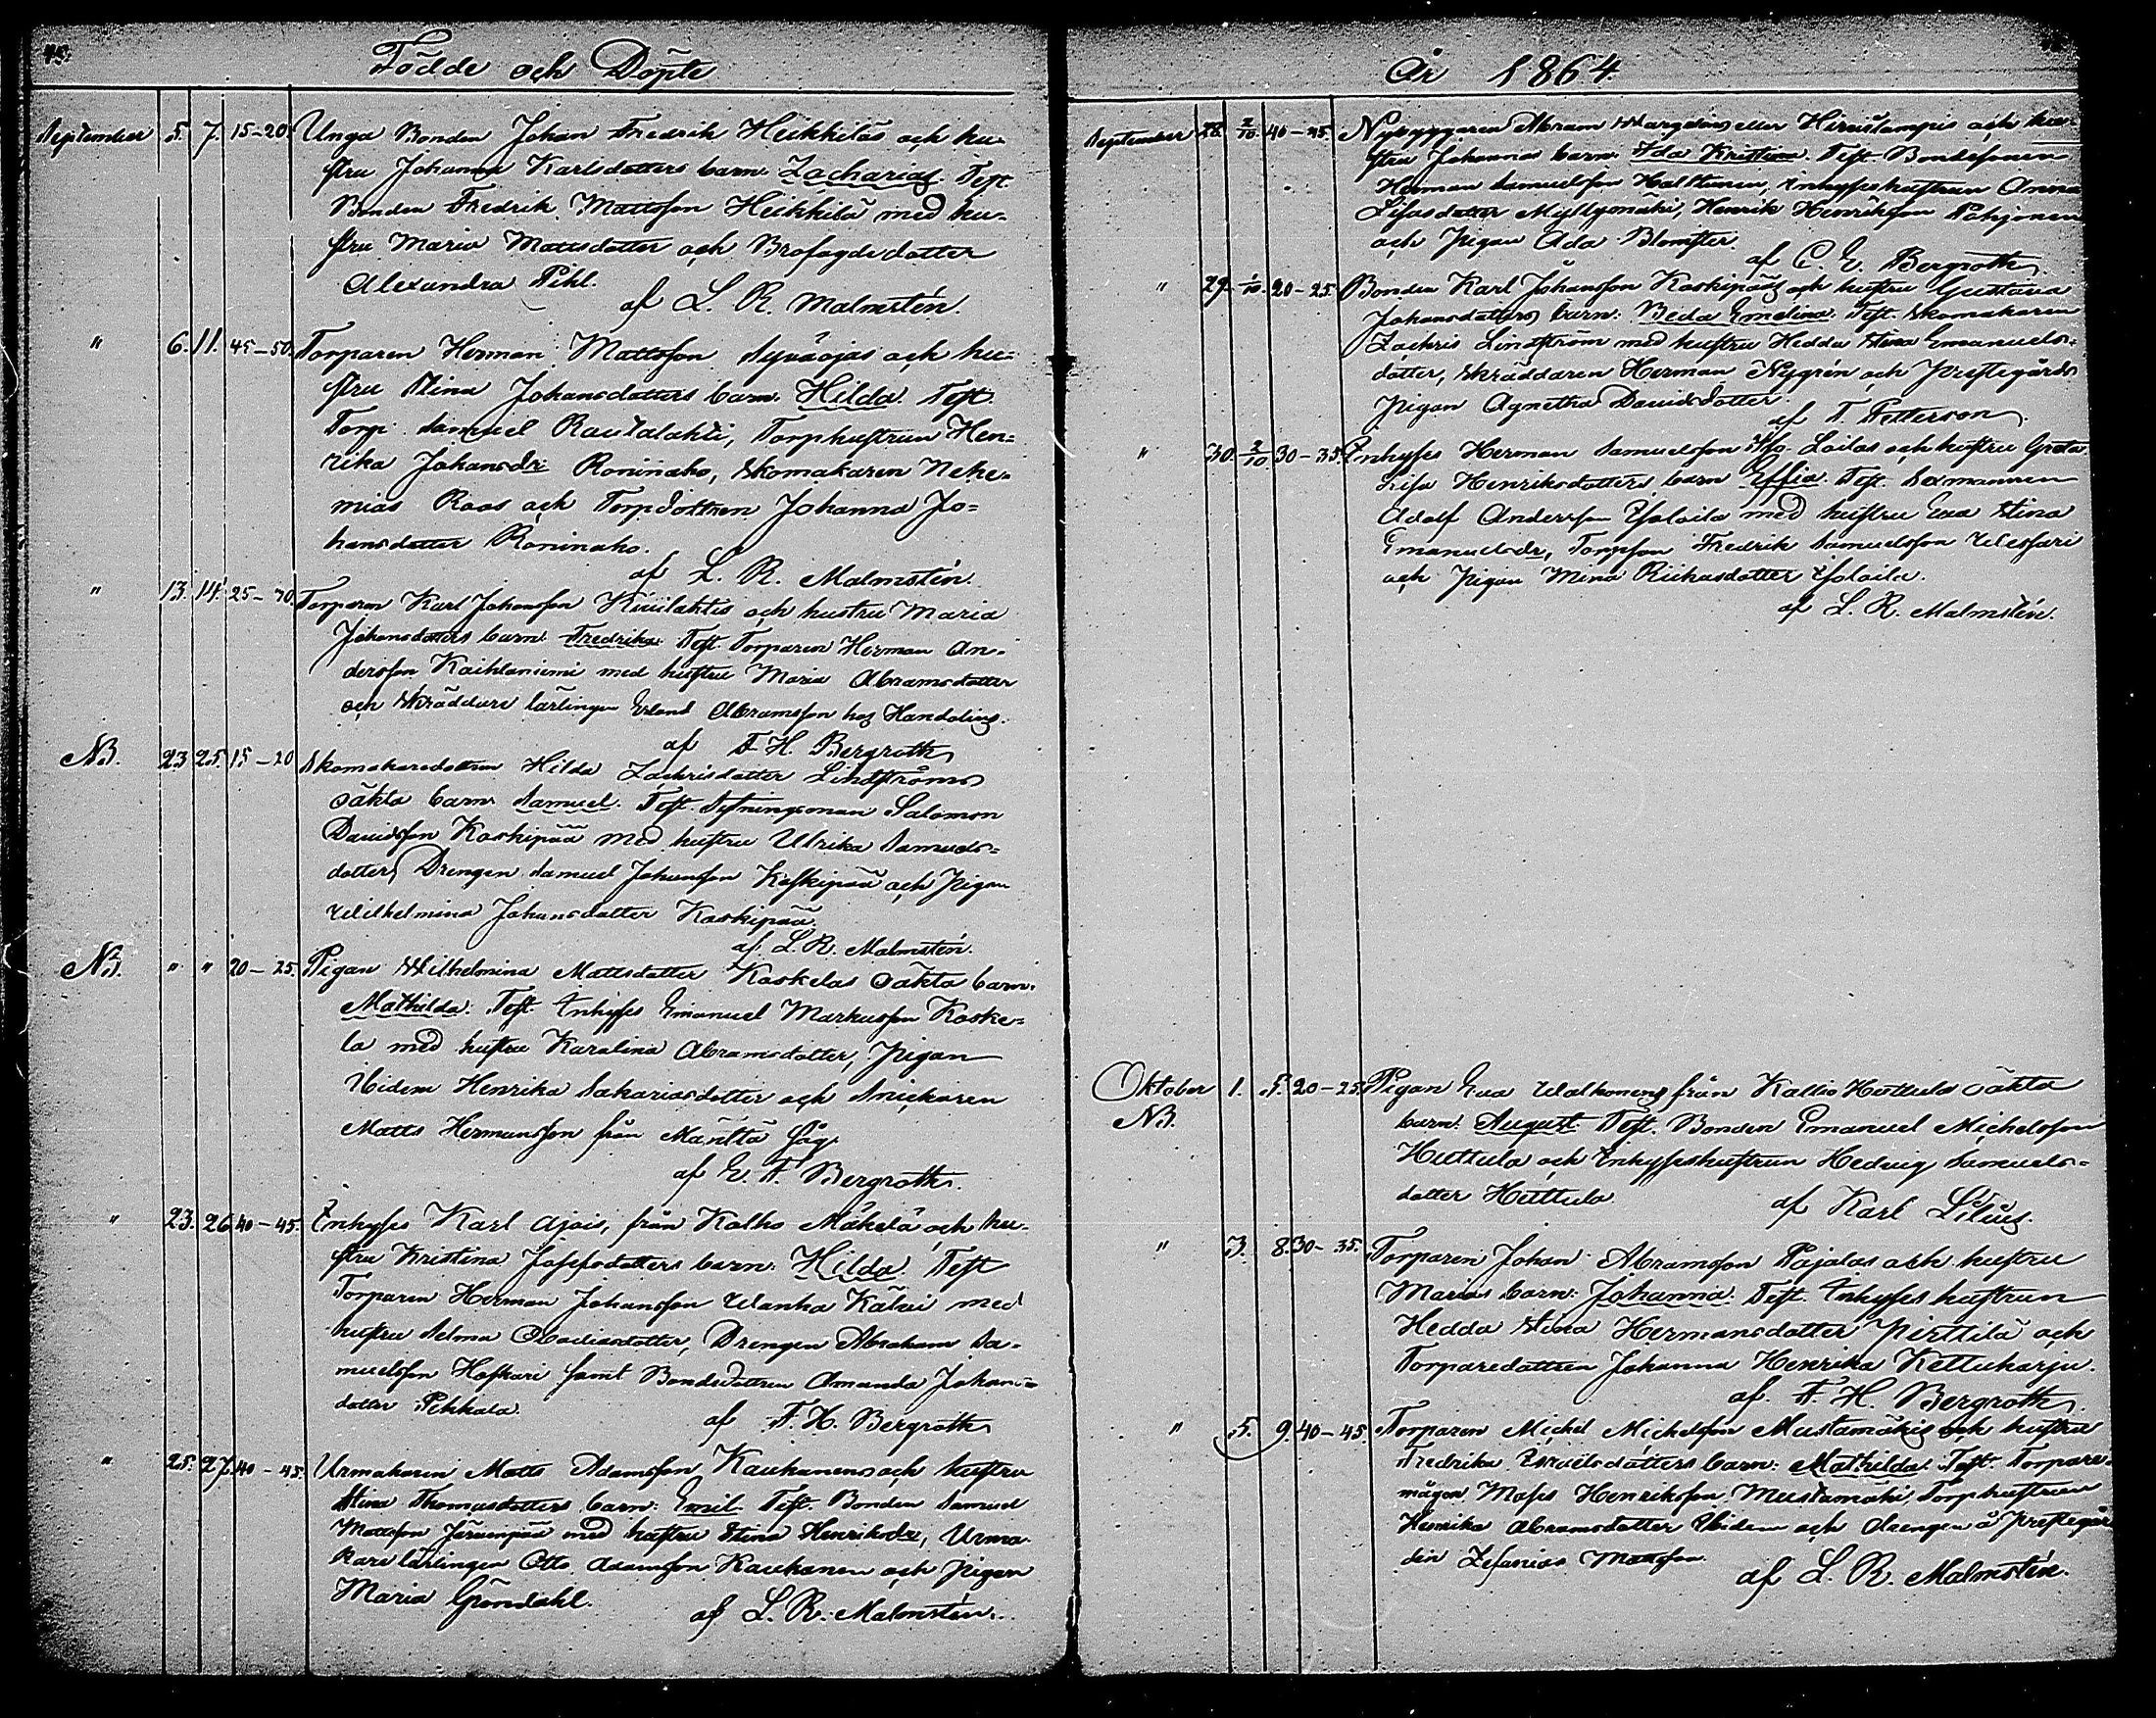 Födde och Döpte
September 5. 7. 15-20. Unga Bonden Johan Fredrik Heikkiläs och hu-
stru Johanna Karlsdotters barn: Zacharias. Test.
Bonden Fredrik Mattsson Heikkilä med hu-
stru Maria Mattsdotter och Brofogdedotter
Alexandra Pihl.
af L. R. Malmstén.
" 6. 11. 45-50. Torparen Herman Mattsson Syväojas och hu-
stru Stina Johansdotters barn: Hilda. Test.
Torp. Samuel Rautalahti, Torphustrun Hen-
rika Johansdr Roninaho, Skomakaren Nehe-
mias Roos och Torpdottren Johanna Jo-
hansdotter Roninaho.
af L. R. Malmstén.
" 13. 14. 25-30. Torparen Karl Johansson Kiuilahtis och hustru Maria
Johansdotters barn: Fredrika. Test. Torparen Herman An-
dersson Kaihlaniemi med hustru Maria Abramsdotter
och Skräddare lärlingen Erland Abramsson hos Handolin.
af F. H. Bergroth
NB. 23. 25. 15-20 Skomakaredottren Hilda Zachrisdotter Lindströms
oäkta barn Samuel. Test. Sytningsman Salomon
Davidsson Koskipää med hustru Ulrika Samuels-
dotter, Drengen Samuel Johansson Koskipää och Pigan
Wilhelmina Johansdotter Koskipää.
af L. R. Malmstén.
NB. " " 20-25. Pigan Wilhelmina Mattsdotter Koskelas oäkta barn.
Mathilda. Test. Inhyses Emanuel Markusson Koske-
la med hustru Karalina Abramsdotter, Pigan
Ibidem Henrika Sakariasdotter och Snickaren
Matts Hermansson från Mänttä Såg.
af E. F. Bergroth.
" 23. 26. 40-45. Inhyses Karl Ajois, från Kalho Mäkelä och hu-
stru Kristina Josefsdotters barn: Hilda. Test
Torparen Herman Johansson Wanha Kälvi med
hustru Selma Obadiasdotter, Drengen Abraham Sa-
muelsson Hoskari samt Bondedottren Amanda Johans-
dotter Pekkala.
af F. H. Bergroth
" 25. 27. 40-45. Urmakaren Matts Adamsson Kauhanens och hustru
Stina Thomasdotters barn: Emil. Test. Bonden Samuel
Mattsson Järvenpää med hustru Stina Henriksdr, Urma-
kare lärlingen Otto Adamsson Kauhanen och Pigan
Maria Gröndahl.
af L. R. Malmstén.
År 1864
September 28. 2/10. 40-45. Nybyggaren Abram eller Hirvilampis och hu-
stru Johannas barn: Ida Kristina. Test. Bondesonen
Herman Samuelsson Halttunen, Inhyseshustrun Anna
Lisasdotter Myllymäki, Henrik Henriksson Pohjonen
och Pigan Ada Blomster.
af C. E. Bergroth.
" 29. 1/10. 20-25. Bonden Karl Johansson Koskipääs och hustru Gustava
Johansdotters barn: Beda Emelina. Test. Skomakaren
Zachris Lindström med hustru Hedda Stina Emanuels-
dotter, Skräddaren Herman Nygrén och Prestegårds
Pigan Agnetha Davidsdotter.
af F. Petterson.
" 30. 2/10 30-35. Inhyses Herman Samuelsson Loilas och hustru Greta
Lisa Henriksdotters barn Effia. Test. Sexmannen
Adolf Andersson Yloila med hustru Eva Stina
Emanuelsdr, Torpson Fredrik Samuelsson Wessari
och Pigan Mina Rickasdotter Yloila.
af L. R. Malmstén.
Oktober 1. 5. 20-25. Pigan Eva Walkonens från Kallio Huttula oäkta
NB. barn: August. Test. Bonden Emanuel Michelsson
Huttula och Inhyseshustrun Hedvig Samuels-
dotter Huttula.
af Karl Lilius.
" 3. 8. 30-35. Torparen Johan Abramsson Pajalas och hustru
Marias barn: Johanna. Test. Inhyses hustrun
Hedda Stina Hermansdotter Pirttilä och
Torparedottren Johanna Henrika Kettuharju.
af F. H. Bergroth.
" 5. 9. 40-45. Torparen Michel Michelsson Mustamäkis och hustru
Fredrika Israelsdotters barn: Mathilda. Test. Torpare-
mågen Moses Henriksson Mustamäki, Torphustrun
Henrika Abramsdotter Ibidem och Drengen å Prestegår-
den Zefanias Mattsson.
af L. R. Malmstén.